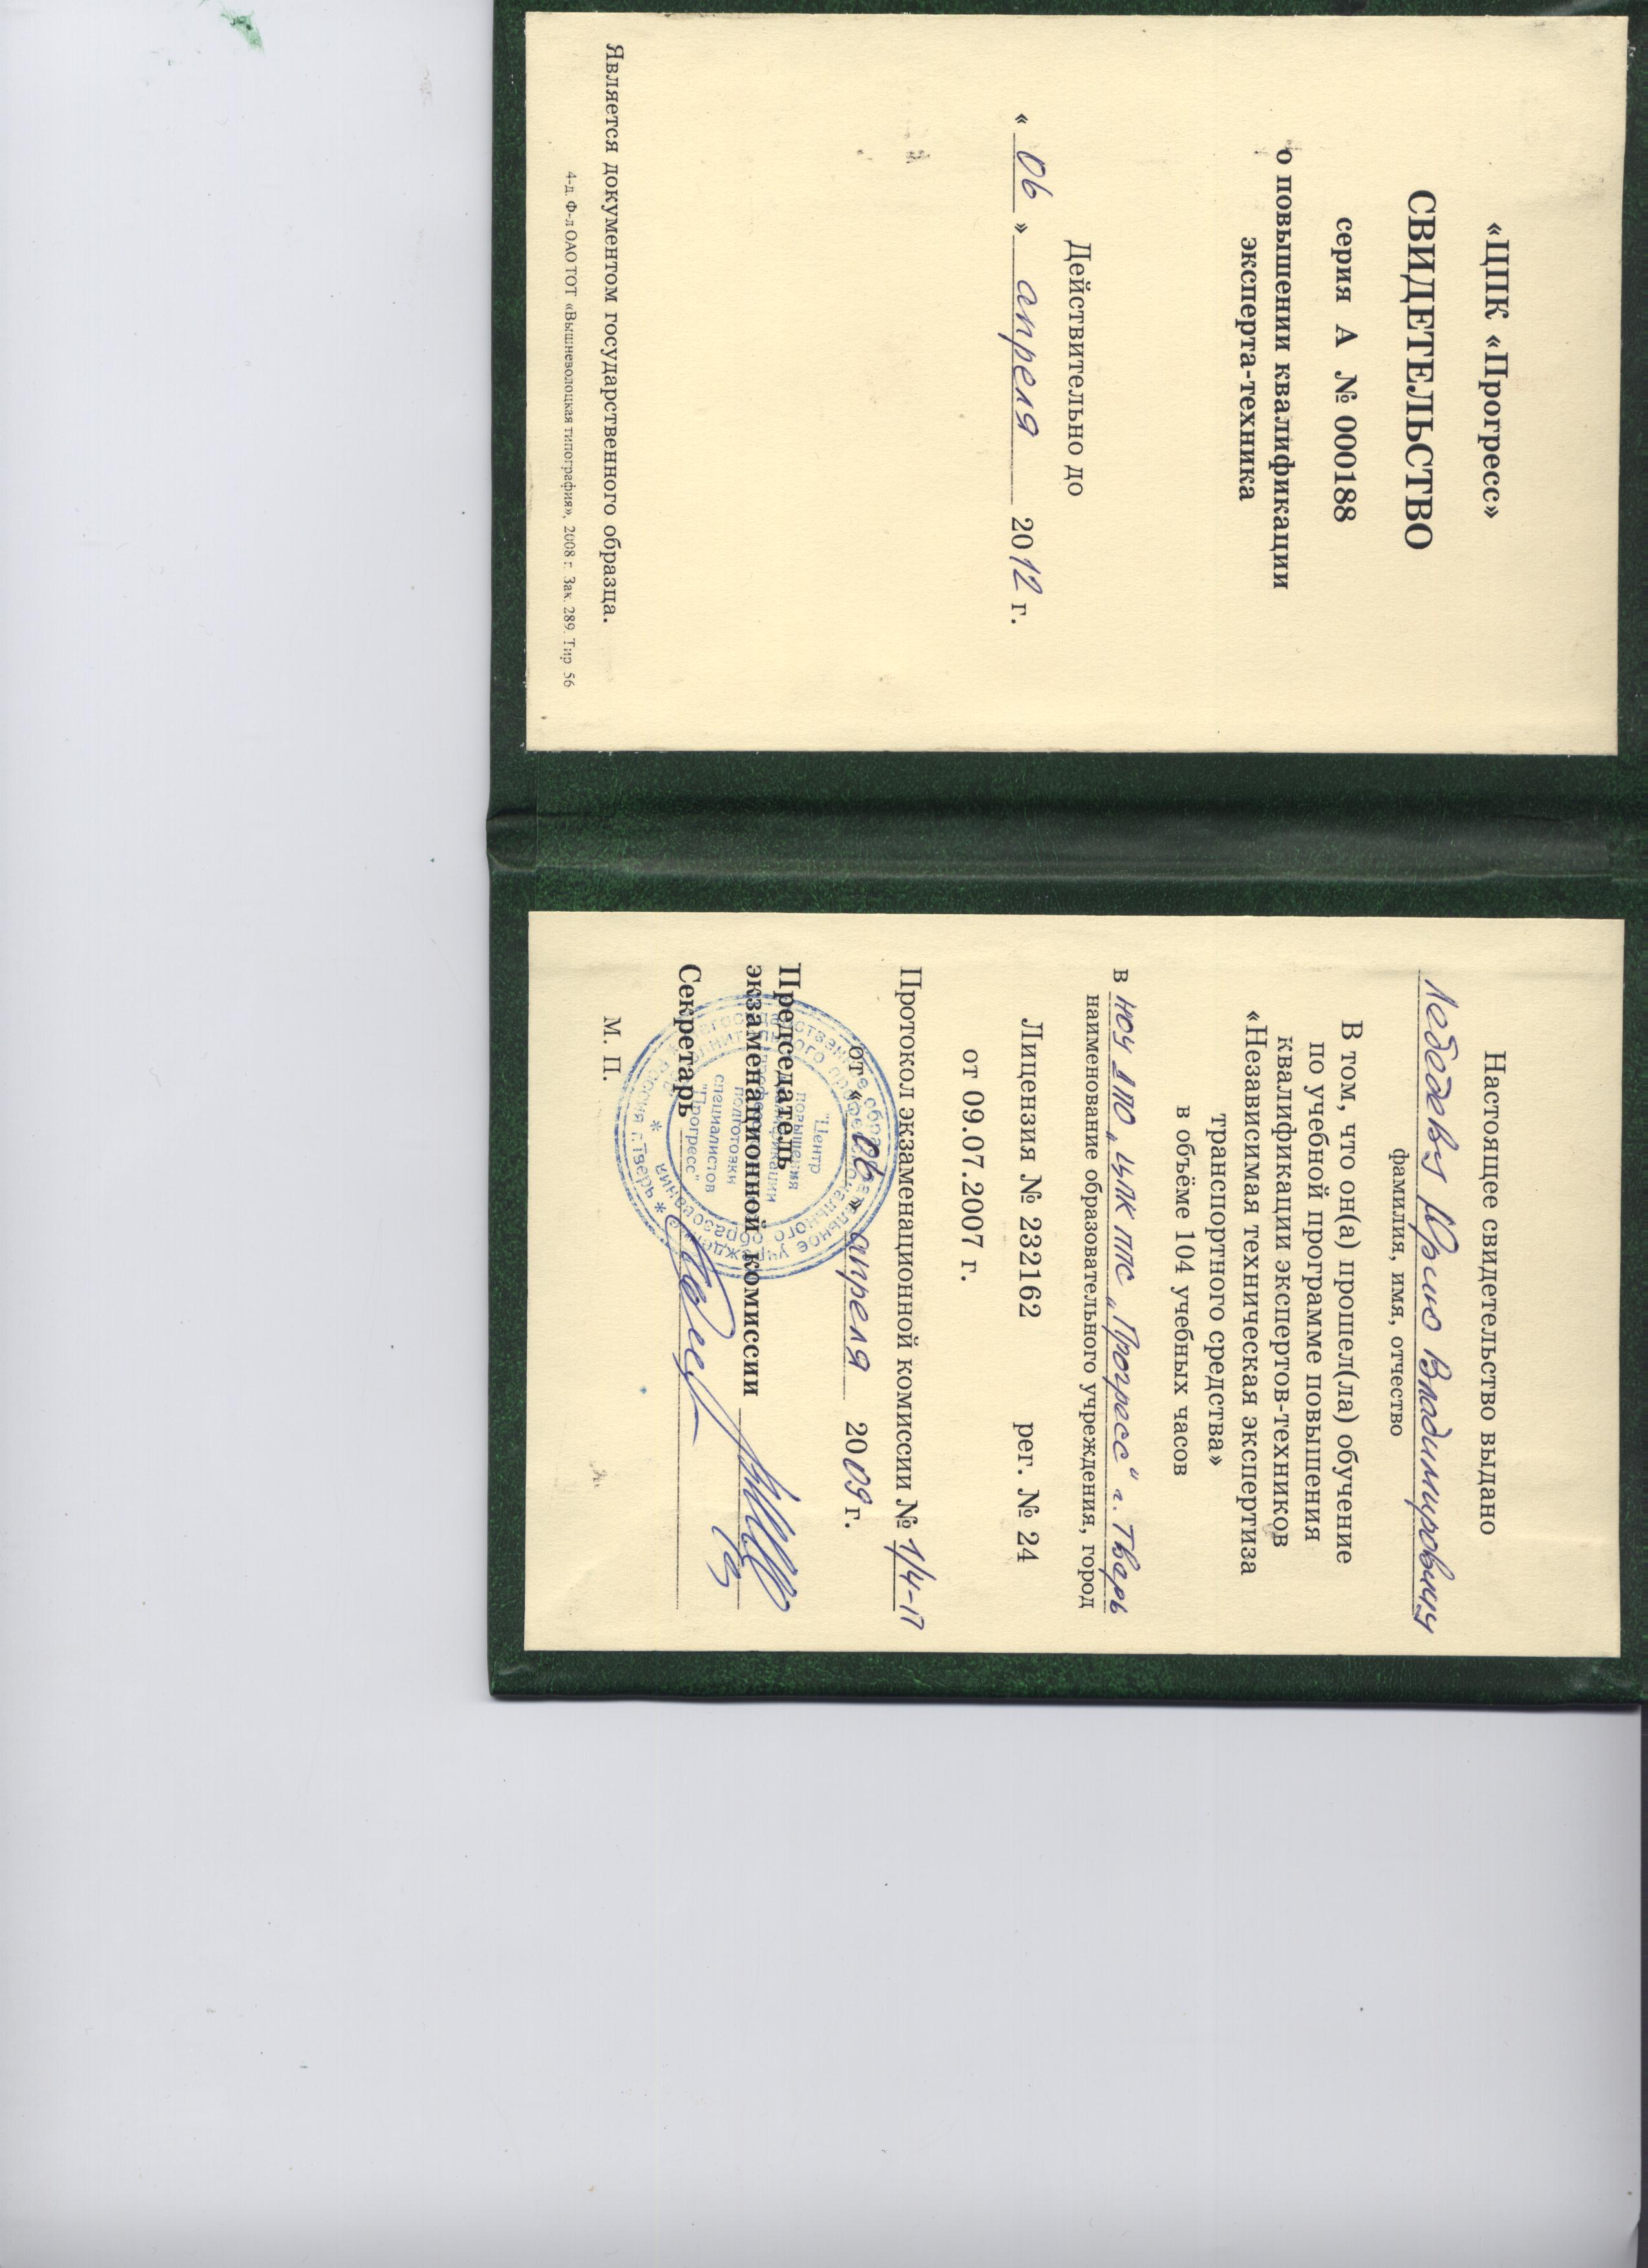 «ЦПК «Прогресс»
СВИДЕТЕЛЬСТВО
серия А № 000188
о повышении квалификации
эксперта-техника
Действительно до
« 06 » апреля 2012 г.
Является документом государственного образца.
4-д. Ф-л ОАО ТОТ «Вышневолоцкая типография», 2008 г. Зак. 289. Тир 56
Настоящее свидетельство выдано
Лебедеву Юрию Владимировичу
фамилия, имя, отчество
В том, что он(а) прошел(ла) обучение
по учебной программе повышения
квалификации экспертов-техников
«Независимая техническая экспертиза
транспортного средства»
в объёме 104 учебных часов
в НОУ ДПО „ЦПК ППС „Прогресс“ г. Тверь
наименование образовательного учреждения, город
Лицензия № 232162 рег. № 24
от 09.07.2007 г.
Протокол экзаменационной комиссии № 1/4-П
от « 06 » апреля 2009 г.
Председатель
экзаменационной комиссии
Секретарь
М. П.
"Центр
повышения
квалификации
подготовки
специалистов
"Прогресс"
* Россия г.Тверь *